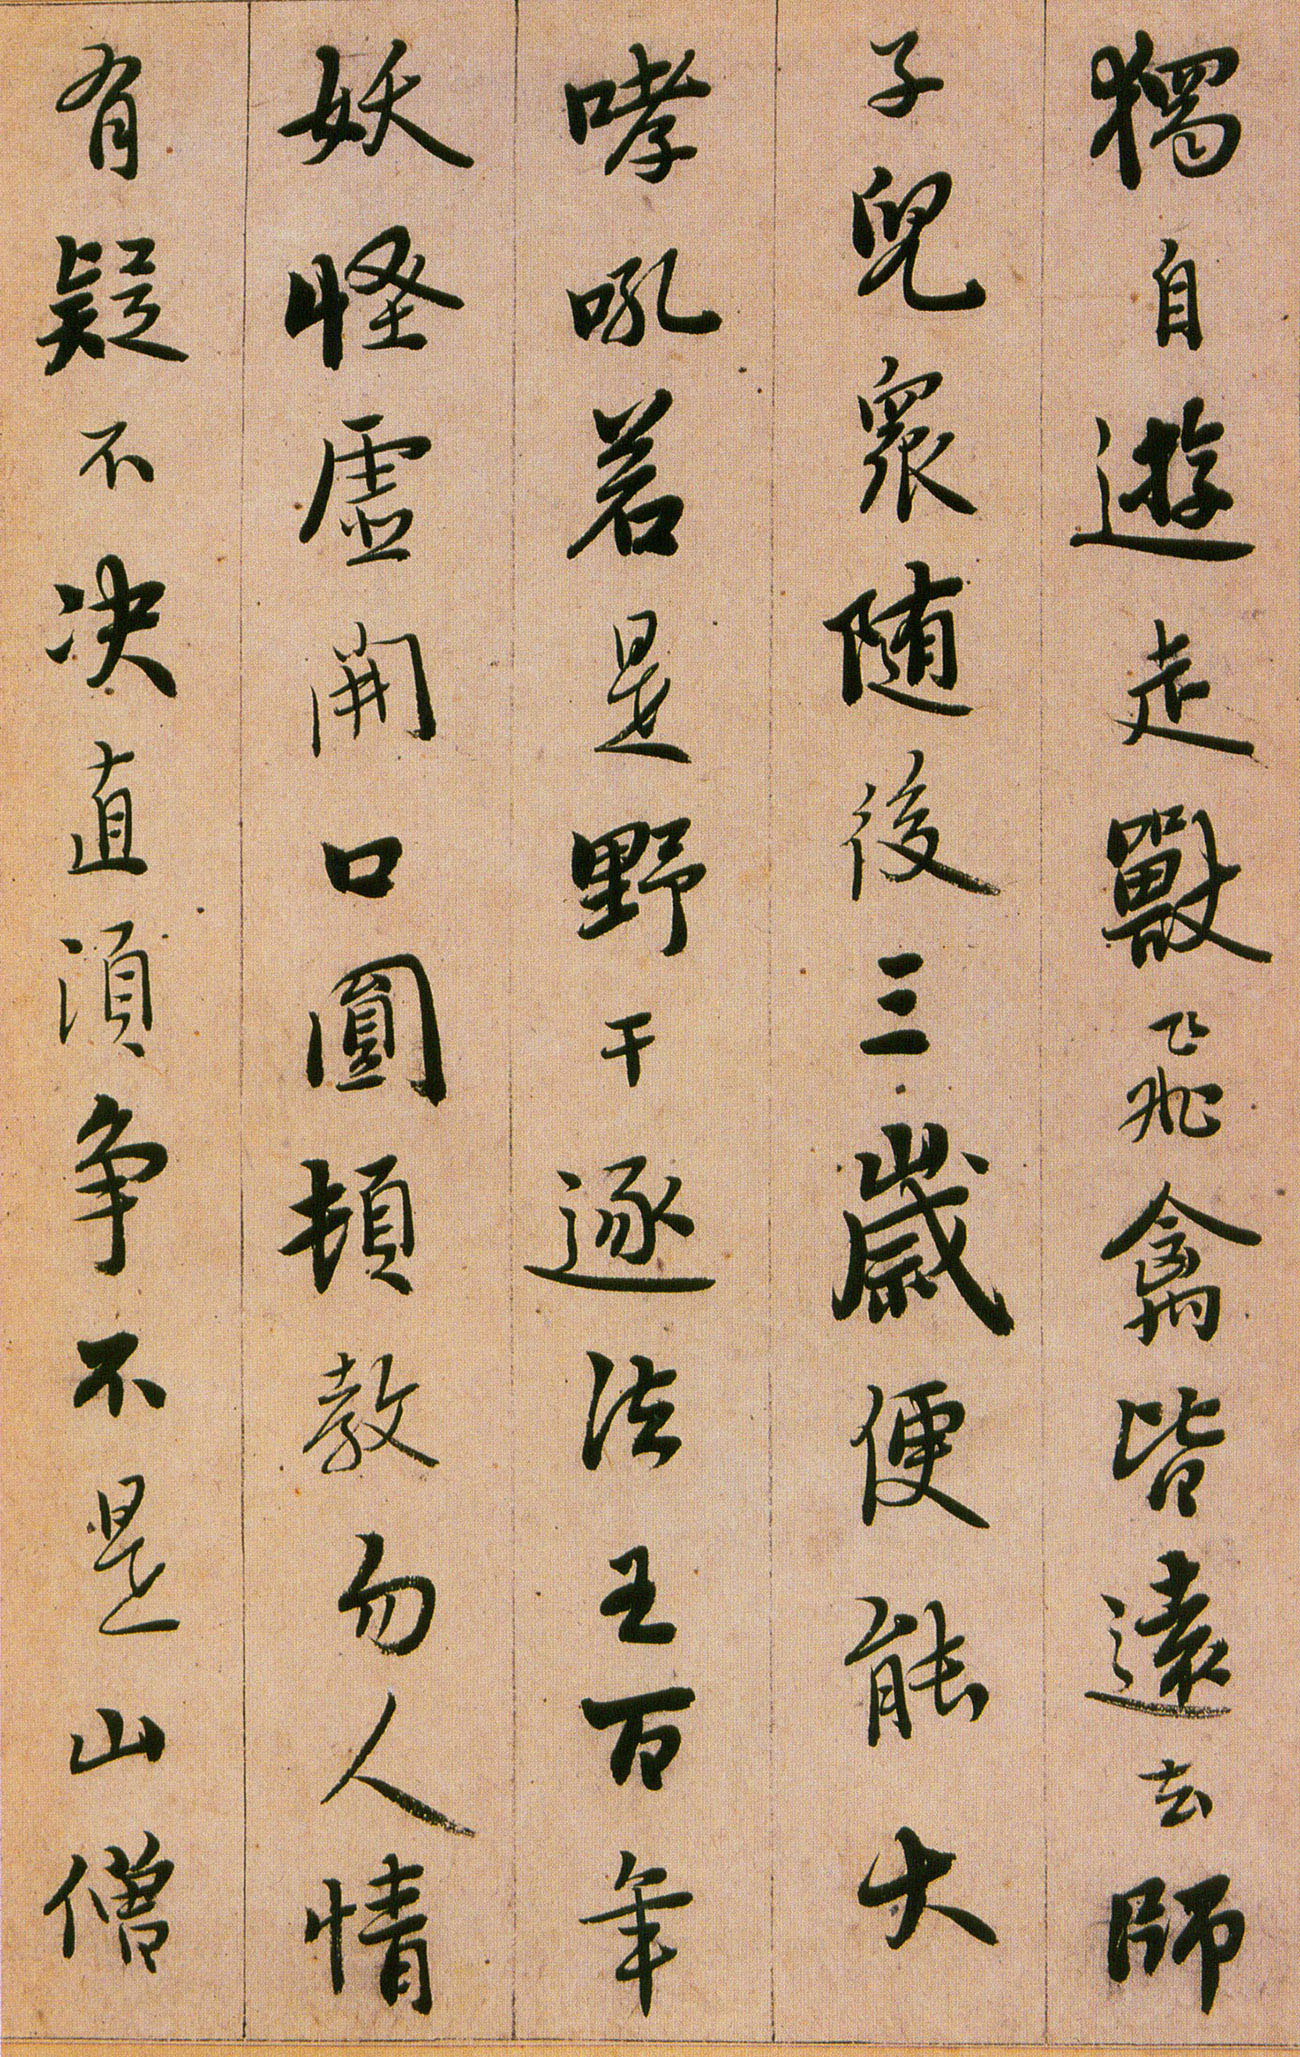 獨自遊走獸飛禽皆遠去師
子兒衆随後三歲便能大
哮吼若是野干逐法王百年
妖怪虛開口圓頓教勿人情
有疑不决直湏争不是山僧